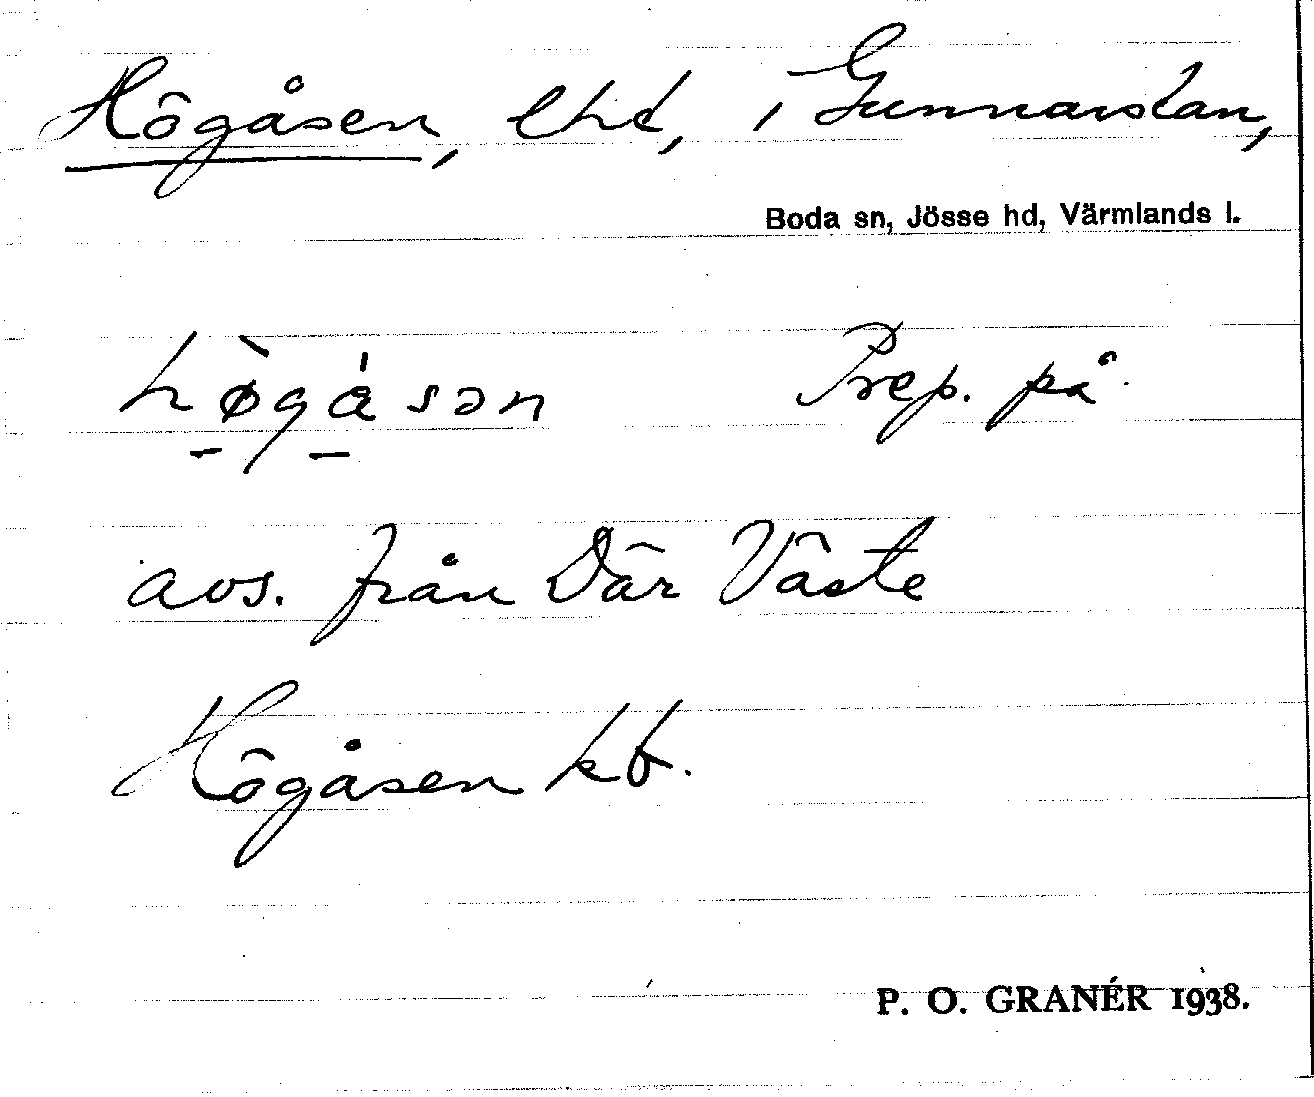 Högåsen, lhd, i Gunnarstan,
Boda sn, Jösse hd, Värmlands l.
hø̀gåsən Prep. på
avs. från Där Väste
Högåsen kb.
P. O. GRANÉR 1938.